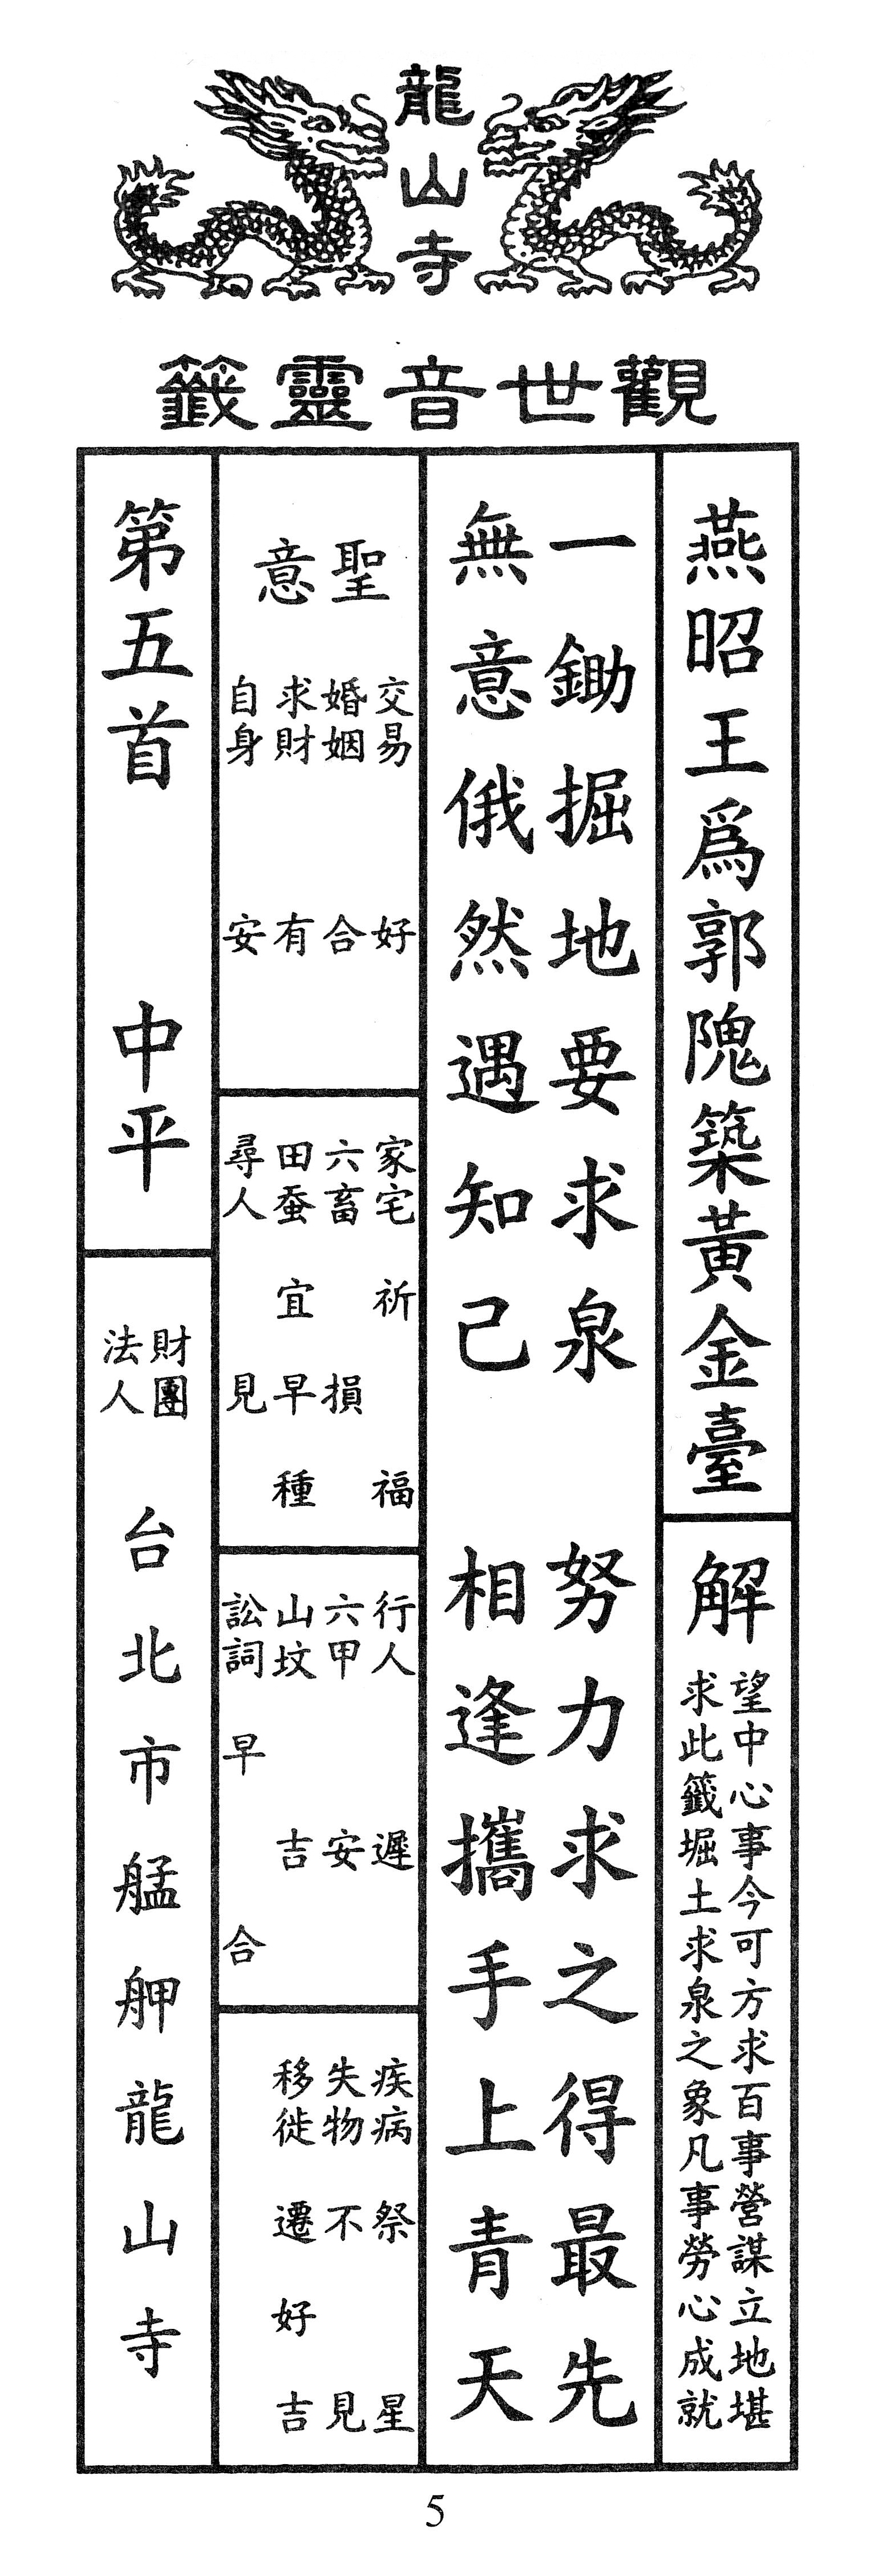 龍山寺
觀世音靈籤
燕昭王為郭隗築黃金臺
解
望中心事今可方求百事營謀立地堪
求此籤堀土求泉之象凡事勞心成就
一鋤掘地要求泉 努力求之得最先
無意俄然遇知己 相逢攜手上青天
聖意
交易 好
婚姻 合
求財 有
自身 安
家宅 祈福
六畜 損
田蚕 宜早種
尋人 見
行人 遲
六甲 安
山坟 吉
訟詞 早合
疾病 祭星
失物 不見
移徙 遷好吉
第五首 中平
財團
法人
台北市艋舺龍山寺
5